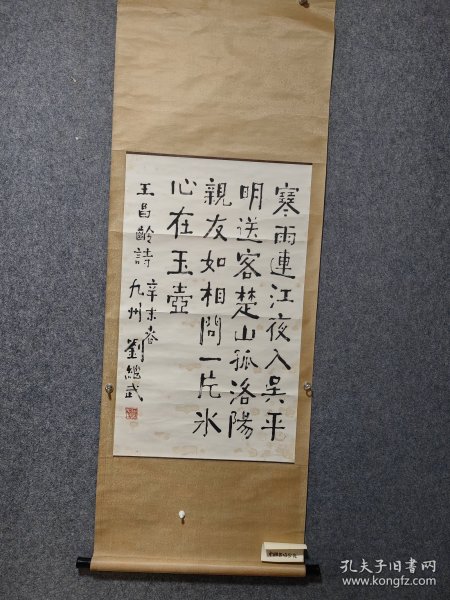 寒雨連江夜入吴平
明送客楚山孤洛陽
親友如相問一片氷
心在玉壺
王昌齡詩 辛未春
九州 劉繼武
孔夫子旧书网
www.kongfz.com